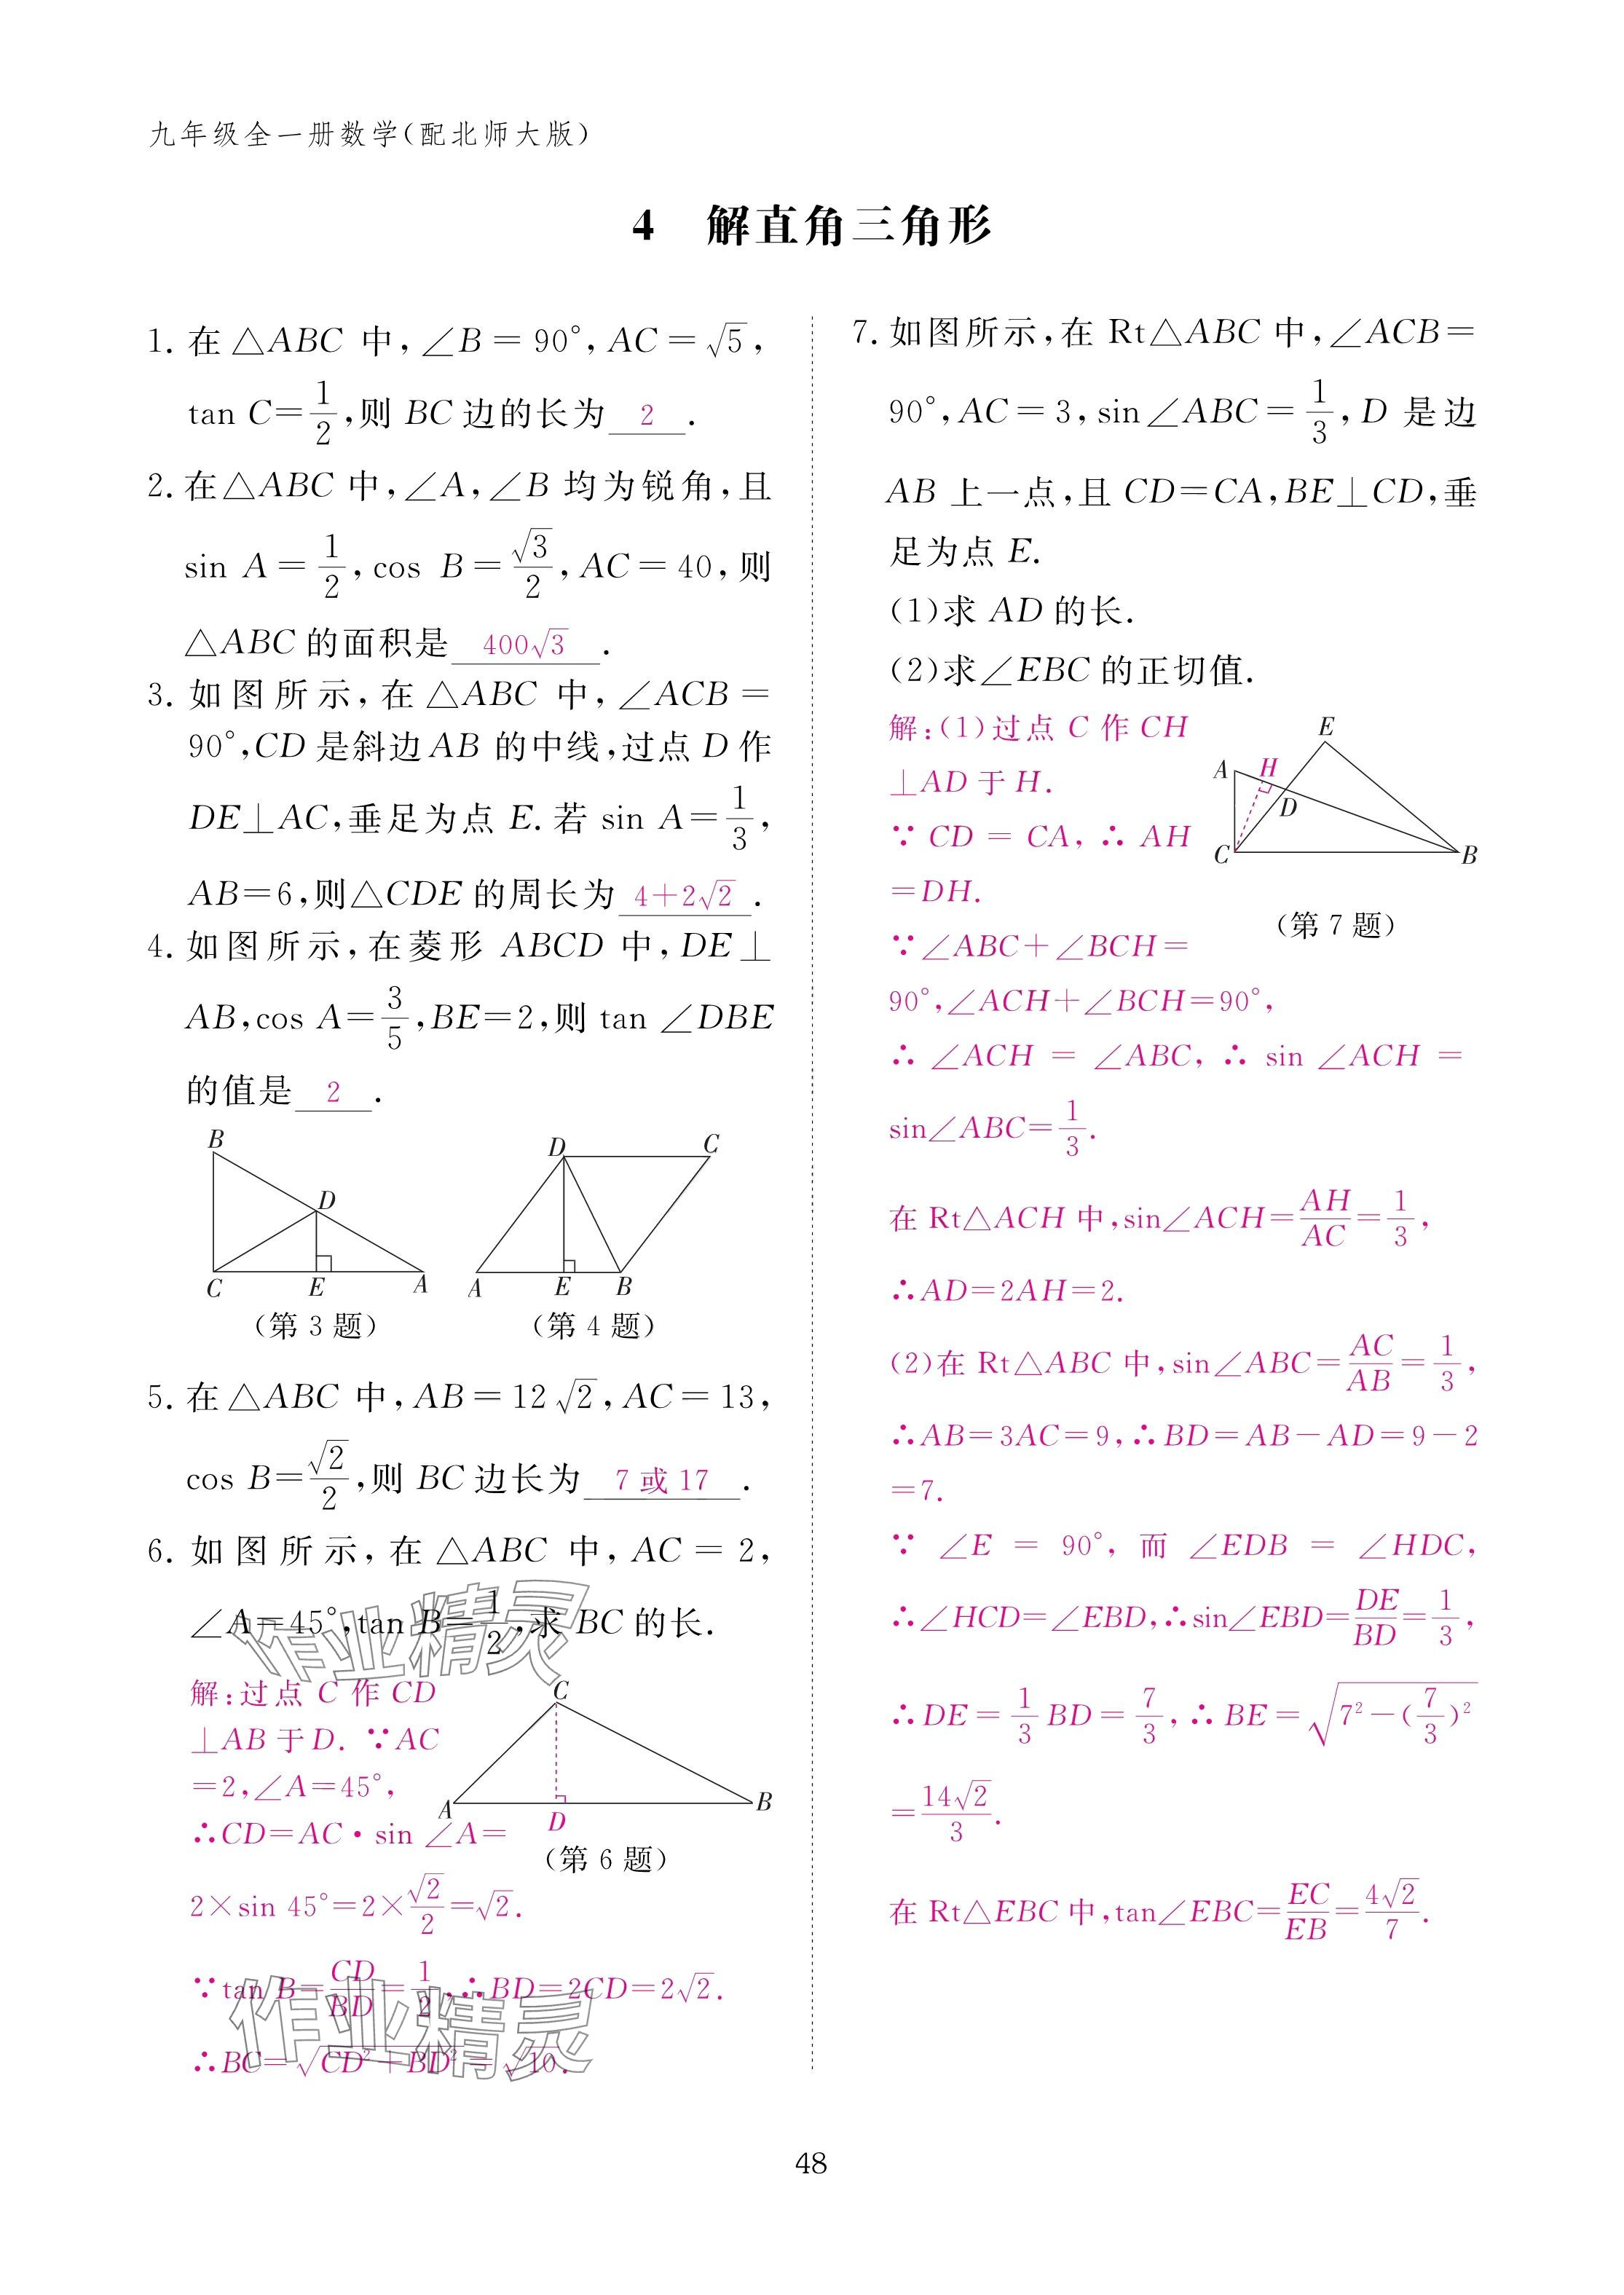 九年级全一册数学(配北师大版)
4 解直角三角形
1. 在△ABC 中,∠B=90°,AC=√5,
tan C=1/2,则 BC 边的长为 2 .
2. 在△ABC 中,∠A,∠B 均为锐角,且
sin A=1/2,cos B=√3/2,AC=40,则
△ABC 的面积是 400√3 .
3. 如图所示,在△ABC 中,∠ACB=
90°,CD 是斜边 AB 的中线,过点 D 作
DE⊥AC,垂足为点 E. 若 sin A=1/3,
AB=6,则△CDE 的周长为 4+2√2 .
4. 如图所示,在菱形 ABCD 中,DE⊥
AB,cos A=3/5,BE=2,则 tan ∠DBE
的值是 2 .
B
D
C E A
(第 3 题)
D C
A E B
(第 4 题)
5. 在△ABC 中,AB=12√2,AC=13,
cos B=√2/2,则 BC 边长为 7 或 17 .
6. 如图所示,在△ABC 中,AC=2,
∠A=45°,tan B=1/2,求 BC 的长.
解:过点 C 作 CD
⊥AB 于 D. ∵AC
=2,∠A=45°,
∴CD=AC·sin ∠A=
2×sin 45°=2×√2/2=√2.
∵tan B=CD/BD=1/2,∴BD=2CD=2√2.
∴BC=√(CD²+BD²)=√10.
C
A D B
(第 6 题)
作业精灵
作业精灵
7. 如图所示,在 Rt△ABC 中,∠ACB=
90°,AC=3,sin∠ABC=1/3,D 是边
AB 上一点,且 CD=CA,BE⊥CD,垂
足为点 E.
(1)求 AD 的长.
(2)求∠EBC 的正切值.
解:(1)过点 C 作 CH
⊥AD 于 H.
∵ CD = CA, ∴ AH
=DH.
∵∠ABC+∠BCH=
90°,∠ACH+∠BCH=90°,
∴ ∠ACH = ∠ABC, ∴ sin ∠ACH =
sin∠ABC=1/3.
在 Rt△ACH 中,sin∠ACH=AH/AC=1/3,
∴AD=2AH=2.
(2)在 Rt△ABC 中,sin∠ABC=AC/AB=1/3,
∴AB=3AC=9,∴BD=AB-AD=9-2
=7.
∵ ∠E = 90°, 而 ∠EDB = ∠HDC,
∴∠HCD=∠EBD,∴sin∠EBD=DE/BD=1/3,
∴DE=1/3 BD=7/3,∴BE=√(7²-(7/3)²)
=14√2/3.
在 Rt△EBC 中,tan∠EBC=EC/EB=4√2/7.
E
A H
D
C B
(第 7 题)
48